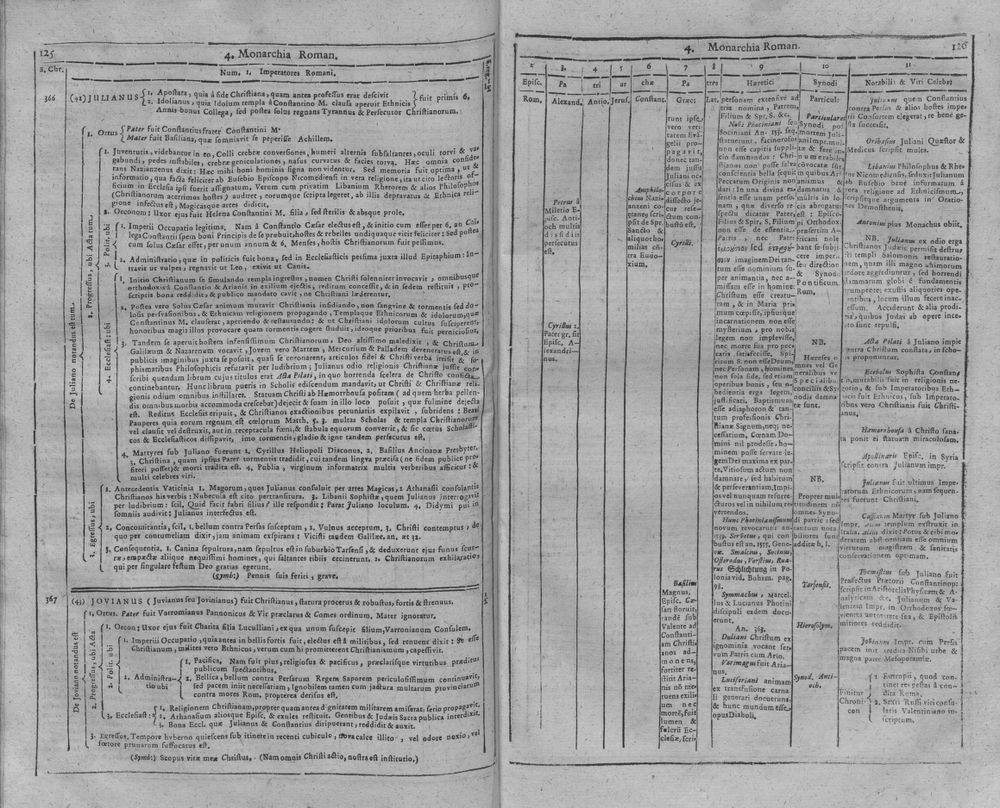 125
4. Monarchia Roman.
a. Chr.
Num. 1. Imperatores Romani.
366
(42) JULIANUS
1. Apostata, quia à fide Christiana, quam antea professus erat descivit
2. Idolianus, quia Idolum templa à Constantino M. clausa aperuit Ethnicis
fuit primis 6,
Annis bonus Collega, sed postea solus regnans Tyrannus & Persecutor Christianorum.
De Juliano notandus est num.
1. Ortus
Pater fuit Constantius frater Constantini M.
Mater fuit Basilina, quæ somniavit se peperisse Achillem.
2. Progressus, ubi Acta tum.
1. Juventutis, videbantur in eo, Colli crebræ conversiones, humeri alternis subsultantes, oculi torvi & va-
gabundi, pedes instabiles, crebræ geniculationes, nasus curvatus & facies torva. Hæc omnia conside-
rans Nazianzenus dixit: Hæc mihi boni hominis signa non videntur. Sed memoria fuit optima, ut &
informatio, qua facta feliciter ab Eusebio Episcopo Nicomediensi in vera religione, ita ut cito lectoris of-
ficium in Ecclesia ipsi fuerit assignatum, Verum cum privatim Libanium Rhetorem & alios Philosophos
(Christianorum acerrimos hostes) audiret, eorumque scripta legeret, ab illis depravatus & Ethnica reli-
gione infectus est, Magicasque artes didicit,
2. Oeconom: Uxor ejus fuit Helena Constantini M. filia, sed sterilis & absque prole.
3. Polit. ubi
1. Imperii Occupatio legitima, Nam à Constantio Cæsar electus est, & initio cum esset per 6. an Col-
lega Constantii spem boni Principis de se præbuit, hostes & rebelles undiquaque vicit feliciter: Sed postea
cum solus Cæsar esset, per unum annum & 6, Menses, hostis Christianorum fuit pessimus.
2. Administratio, quæ in politicis fuit bona, sed in Ecclesiasticis pessima juxta illud Epitaphium: In-
travit ut vulpes, regnavit ut Leo, exivit ut Canis.
4. Ecclesiast: ubi
1. Initio Christianum se simulando templa ingressus, nomen Christi solenniter invocavit, omnibusque
orthodoxis à Constantio & Arianis in exilium ejectis, reditum concessit, & in sedem restituit, pro-
scriptis bona reddidit; & publico mandato cavit, ne Christiani læderentur,
2. Postea vero Solus Cæsar animum mutavit Christianis insidiando, non sanguine & tormentis sed do-
losis persvasionibus, & Ethnicam religionem propagando, Templaque Ethnicorum & idolorum, quæ
Constantinus M. clauserat, aperiendo & restaurando: & ut Christiani idolorum cultus susciperent,
honoribus magis illos provocare quam tormentis cogere studuit, ideoque prioribus fuit perniciosus,
3. Tandem se aperuit hostem infensissimum Christianorum, Deo altissimo maledixit, & Christum
Galilæum & Nazarenum vocavit, Jovem vero Martem, Mercurium & Palladem deveneratus est, & in
publicis imaginibus juxta se posuit, quasi se coronarent, articulos fidei & Christi verba irrisit, & so-
phismatibus Philosophicis refutavit per ludibrium; Julianus odio religionis Christianæ jussit con-
scribi quendam librum cujus titulus erat Acta Pilati, in quo horrenda scelera de Christo conficta
continebantur. Hunc librum pueris in Scholis ediscendum mandavit, ut Christi & Christianæ reli-
gionis odium omnibus instillaret. Statuam Christi ab Hæmorrhousa positam (ad quem herba pellen-
dis omnibus morbis accommoda crescebat) dejecit & suam in illo loco posuit, quæ fulmine dejecta
est. Reditus Ecclesiis eripuit, & Christianos exactionibus pecuniariis expilavit, subridens: Beati
Pauperes quia eorum regnum est cœlorum Matth. 5. 3. multas Scholas & templa Christianorum
vel clausit vel destruxit, aut in receptacula fœni, & stabula equorum convertit, & sic cœtus Scholasti-
cos & Ecclesiasticos dissipavit, imo tormentis, gladio & igne tandem persecutus est,
4. Martyres sub Juliano fuerunt 1. Cyrillus Heliopoli Diaconus, 2. Basilius Ancinanæ Presbyter,
3. Christina, quam ipsius Pater tormentis tradidit, cui tandem lingua præcisa (ne fidem publice pro-
fiteri posset) & morti tradita est. 4. Publia, virginum informatrix multis verberibus afficitur: &
multi celebres viri.
3. Egressus, ubi
1. Antecedentia Vaticinia 1. Magorum, quos Julianus consaluit per artes Magicas, 2. Athanasii consolantis
Christianos his verbis: Nubecula est cito pertransitura. 3. Libanii Sophistæ, quem Julianus interrogavit
per ludibrium: scil. Quid facit fabri filius? ille respondit: Parat Juliano loculum. 4. Didymi cui in
somniis audivit: Julianus interfectus est.
2. Concomitantia, scil, 1. bellum contra Persas susceptum, 2. Vulnus acceptum, 3. Christi contemptus, de
quo per contumeliam dixit, jam animam exspirans: Vicisti tandem Galilæe. an. æt. 32.
3. Consequentia. 1. Canina sepultura, nam sepultus est in suburbio Tarsensi, & deduxerunt ejus funus scur-
ræ aliique nequissimi homines, qui saltantes tibiis cecinerunt. 2. Christianorum exhilaratio,
qui per singulare festum Deo gratias egerunt.
(symb:) Pennis suis feriri, grave.
367
(43) JOVIANUS (Jovianus seu Jovinianus) fuit Christianus, statura procerus & robustus, fortis & strenuus.
De Joviano notandus est
1. Ortus. Pater fuit Varromianus Pannonicus & Vir præclarus & Comes ordinum. Mater ignoratur.
2. Progressus, ubi Acta
1. Oecon: Uxor ejus fuit Charita filia Luculliani, ex qua unum suscepit filium, Varronianum Consulem.
2. Polit. ubi
1. Imperii Occupatio, quia antea in bellis fortis fuit, electus est à militibus, sed renuens dixit: Se esse
Christianum, milites vero Ethnicos, verum cum hi promitterent Christianismum, capessivit.
2. Administra-
tio ubi
1. Pacifica, Nam fuit pius, religiosus & pacificus, præclarisque virtutibus præditus
publicum spectantibus.
2. Bellica, bellum contra Persarum Regem Saporem periculosissimum continuavit,
sed pacem iniit necessariam, Ignobilem tamen cum jactura multarum provinciarum
contra mores Rom, propterea derisus est,
3. Ecclesiast:
1. Religionem Christianam, propter quam antea dignitatem militarem amiserat, serio propagavit.
2. Athanasium aliosque Episc, & exules restituit. Gentibus & Judæis Sacra publica interdixit.
3. Bona Eccl. quæ Julianus & Constantius diripuerant, reddidit & auxit.
3. Egressus, Tempore hyberno quiescens sub itinere in recenti cubiculo, nova calce illito, vel odore noxio, vel
fœtore prunarum suffocatus est.
(Symb:) Scopus vitæ meæ Christus. (Nam omnis Christi actio, nostra est institutio.)
4. Monarchia Roman.
126
2 3. 4. 5 6 7 8 9 10 11
Episc. Pa tri ar chæ Pa tres Hæretici Synodi Notabili: & Viri Celebres
Rom, Alexand. Antio. Jerus. Constant. Græc: Lat. Particul:
Petrus à
Militiæ E-
pisc. Anti-
och multis
dissidiis
persecutus
est,
Cyrillus 1.
Pater gr, fit
Episc, A-
lexandri-
nus.
Amphilo-
chius Nazi-
anzeni co-
temporaneus
Græcis fuit
post Epi-
Sancto &
aliquot ho-
milias ed.
era Eudo-
xium.
runt ipsi,
vero veri-
tatem Evā-
gelii pro-
pagavit,
donec tan-
dem jussu
Juliani oc-
cisus & ex
corpore
dissecto je-
cur refe-
ctum con-
cupiit.
Cyrilli.
Basilius
Magnus,
Episc. Cæ-
sar floruit,
corandē sub
Valente ad
Constanti-
am Christi-
anos ad-
monens,
fortiter re-
stitit Aria-
nis nō me-
tuens exili-
um nec
mortē, fuit
lumen &
fulcrū Ec-
clesiæ, scri-
personam extensivè ad
tria nomina, Patrem,
Filium & Spir, S. &c.
Nobi Photiniani seu
Sociniani An. 155. seq.
statuerunt, facinorosos
non esse capitis suppli-
cio damnandos: Chri-
stianos non posse salva
conscientia bella sequi:
Peccatum Originis non
dari: In una divina es-
sentia esse unam perso-
nam, quæ diverso re-
spectu dicatur Pater,
Filius & Spir, S, Filium
non esse de essentia
Patris, nec Patri
sed
imaginem Dei tan-
tum esse nominium su-
per animantia, nec a-
missam esse in homine:
Christum esse creatu-
ram, & in Maria pri-
mum cœpisse, ipsiusque
incarnationem non esse
mysterium, pro nobis
legem non implevisse,
nec morte sua pro pec-
catis satisfecisse, Spi-
ritum S. non esse Deum,
nec Personam, homines
non sola fide, sed etiam
operibus bonis, seu o-
bedientia erga legem
justificari, Baptismum
esse adiaphoron & tan-
tum professionis Chri-
stianæ Signum, neq; ne-
cessarium, Cœnam Do-
mini nil prodesse, ho-
minem posse servare le-
gem Dei maxima ex par-
te, Vitiosum actum non
damnare, sed habitum
& perseverantiam, Impi-
os vel nunquam resurre-
cturos vel in nihilum re-
vertendos.
Hunc Photinianismum
novum revocarunt an-
1539. Servetus, qui con-
bustus est an. 1555, Gene-
væ. Smalcius, Socinus,
Osterodus, Vorstius, Rua-
rus Schlichtung in Po-
lonia vid, Boham. pag.
98.
Symmachus, marcel-
lus & Lucianus Photini
discipuli eadem docu-
erunt.
An. 363.
Duliani Christum ex
ignominia vocāne ser-
vum Patris cum Ario.
Varimagus fuit Aria-
nus.
Luciferiani animam
ex transfusione carna-
li generari docuerunt,
& hunc mundum esse
opus Diaboli,
Particulares
Synodi po-
mortem Juli-
animprimi-
mæ & fere in-
numerabiles
cōvocatæ sūt,
in quibus Ari-
animus est
damnatus, &
multis in lo-
cis abrogatus
est: Impp: &
Episcopi
Orthodoxi,
præsertim A-
fricani nole-
bant se subji-
cere imperi-
seu directioni
& Synodo
Pontificum
Rom.
NB.
Hæreses o-
mnes vel Ge-
neralibus vel
Specialibus
conciliis & Sy-
nodis damna-
tæ sunt.
NB.
Propter mul-
titudinem nō
omnes Synodi
particulares
notari sunt
nobiliores sunt
additæ h. l.
Tarsensis.
Hierosolym.
Synod. Anti-
och.
Julianus quem Constantius
contra Persas & alios hostes impe-
rii Consortem elegerat, re bene ge-
sta successit.
Oribasius Juliani Quæstor &
Medicus scripsit multa.
Libanius Philosophus & Rhe-
tor Nicomediensis, seduxit Julianum
ab Eusebio bene informatum à
vera religione ad Ethnicismum,
scripsitque argumenta in Oratio-
nes Demosthenis,
Antonius pius Monachus obiit,
NB. Julianus ex odio erga
Christianos Judæis permisit destru-
cti templi Salomonis restauratio-
nem, quam illi magno animorum
ardore aggrediuntur, sed horrendi
flammarum globi è fundamentis
prumpentes exustis aliquoties ope-
rantibus, locum illum fecere inac-
cessum. Acciderunt & alia prodi-
gia, quibus Judæi ab opere ince-
pto sunt repulsi.
Acta Pilati à Juliano impie
contra Christum constata, in scho-
lis proponuntur.
Ecebolus Sophista Constan-
tinopol, mutabilis fuit in religionis ne-
gotio, & sub Imperatoribus Eth-
nicis fuit Ethnicus, sub Imperato-
ribus vero Christianis fuit Christi-
anus,
Hæmorhousa à Christo sana-
ta ponit ei statuam miraculosam.
Apollinaris Episc. in Syria
scripsit contra Julianum impr.
Julianus fuit ultimus Impe-
ratorum Ethnicorum, nam sequen-
tes fuerunt Christiani.
Cassianus Martyr sub Juliano
Impr. templum exstruxit in
Italia. dixit: Potus & cibi mo-
deratum absit omnium esse omnium
virtutum magistrum & sanitatis
conservationem optimam.
Themistius sub Juliano fuit
Præfectus Prætorii Constantinop:
scripsit in Aristotelis Physicam & A-
nalyticam &c. Julianum & Va-
lentem Impr. in Orthodoxos sæ-
vientes oratione sua, & Epistolis
mitiores reddidit.
Jovianus Impr. cum Persis
pacem init reddita Nisibi urbe &
magna parte Mesopotamiæ.
Finitur
Chroni-
con
1. Eutropii, quod con-
tinet res gestas à con-
dita Roma.
2. Sexti Russi viri consu-
laris Valentiniano in-
scriptum.